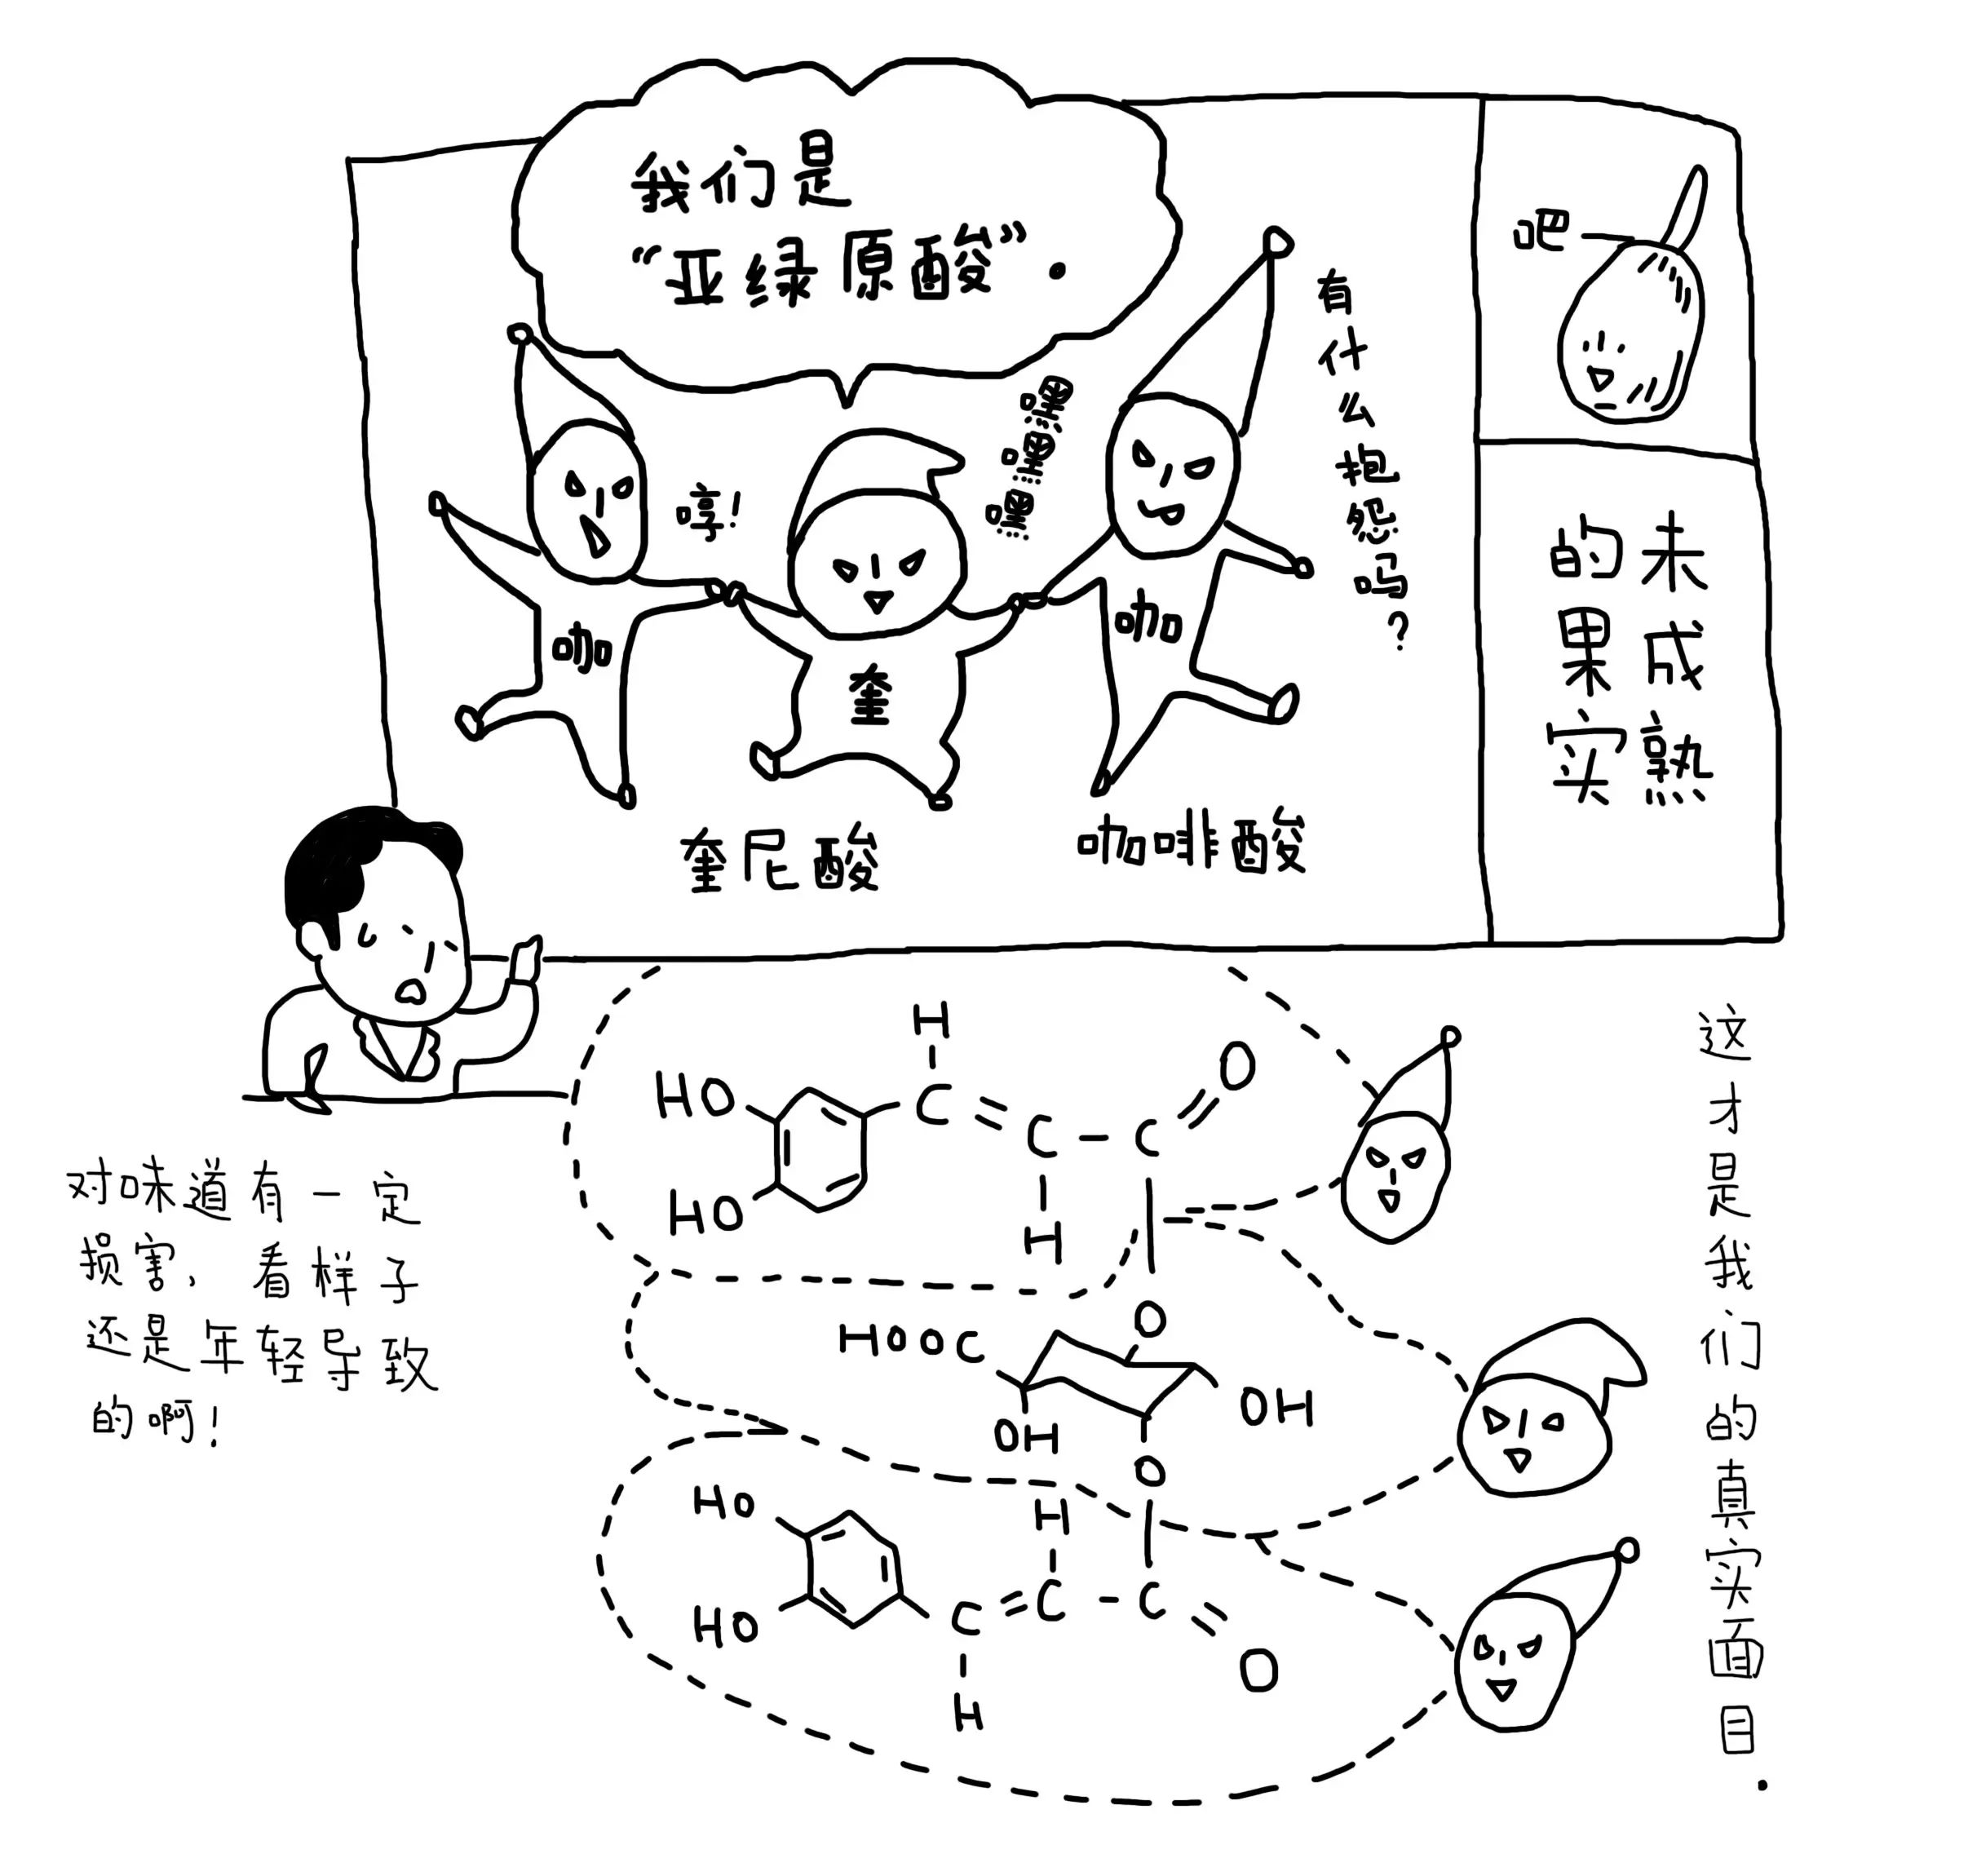 我们是
“亚绿原酸”.
哼!
嘿嘿嘿
有什么抱怨吗?
咖
奎
咖
奎尼酸
咖啡酸
吧
未成熟
的果实
对味道有一定
损害、看样子
还是年轻导致
的啊!
H
HO
C
C
C
O
HO
H
O
HOOC
OH
OH
O
HO
H
C
C
C
HO
O
H
这才是我们的真实面目.